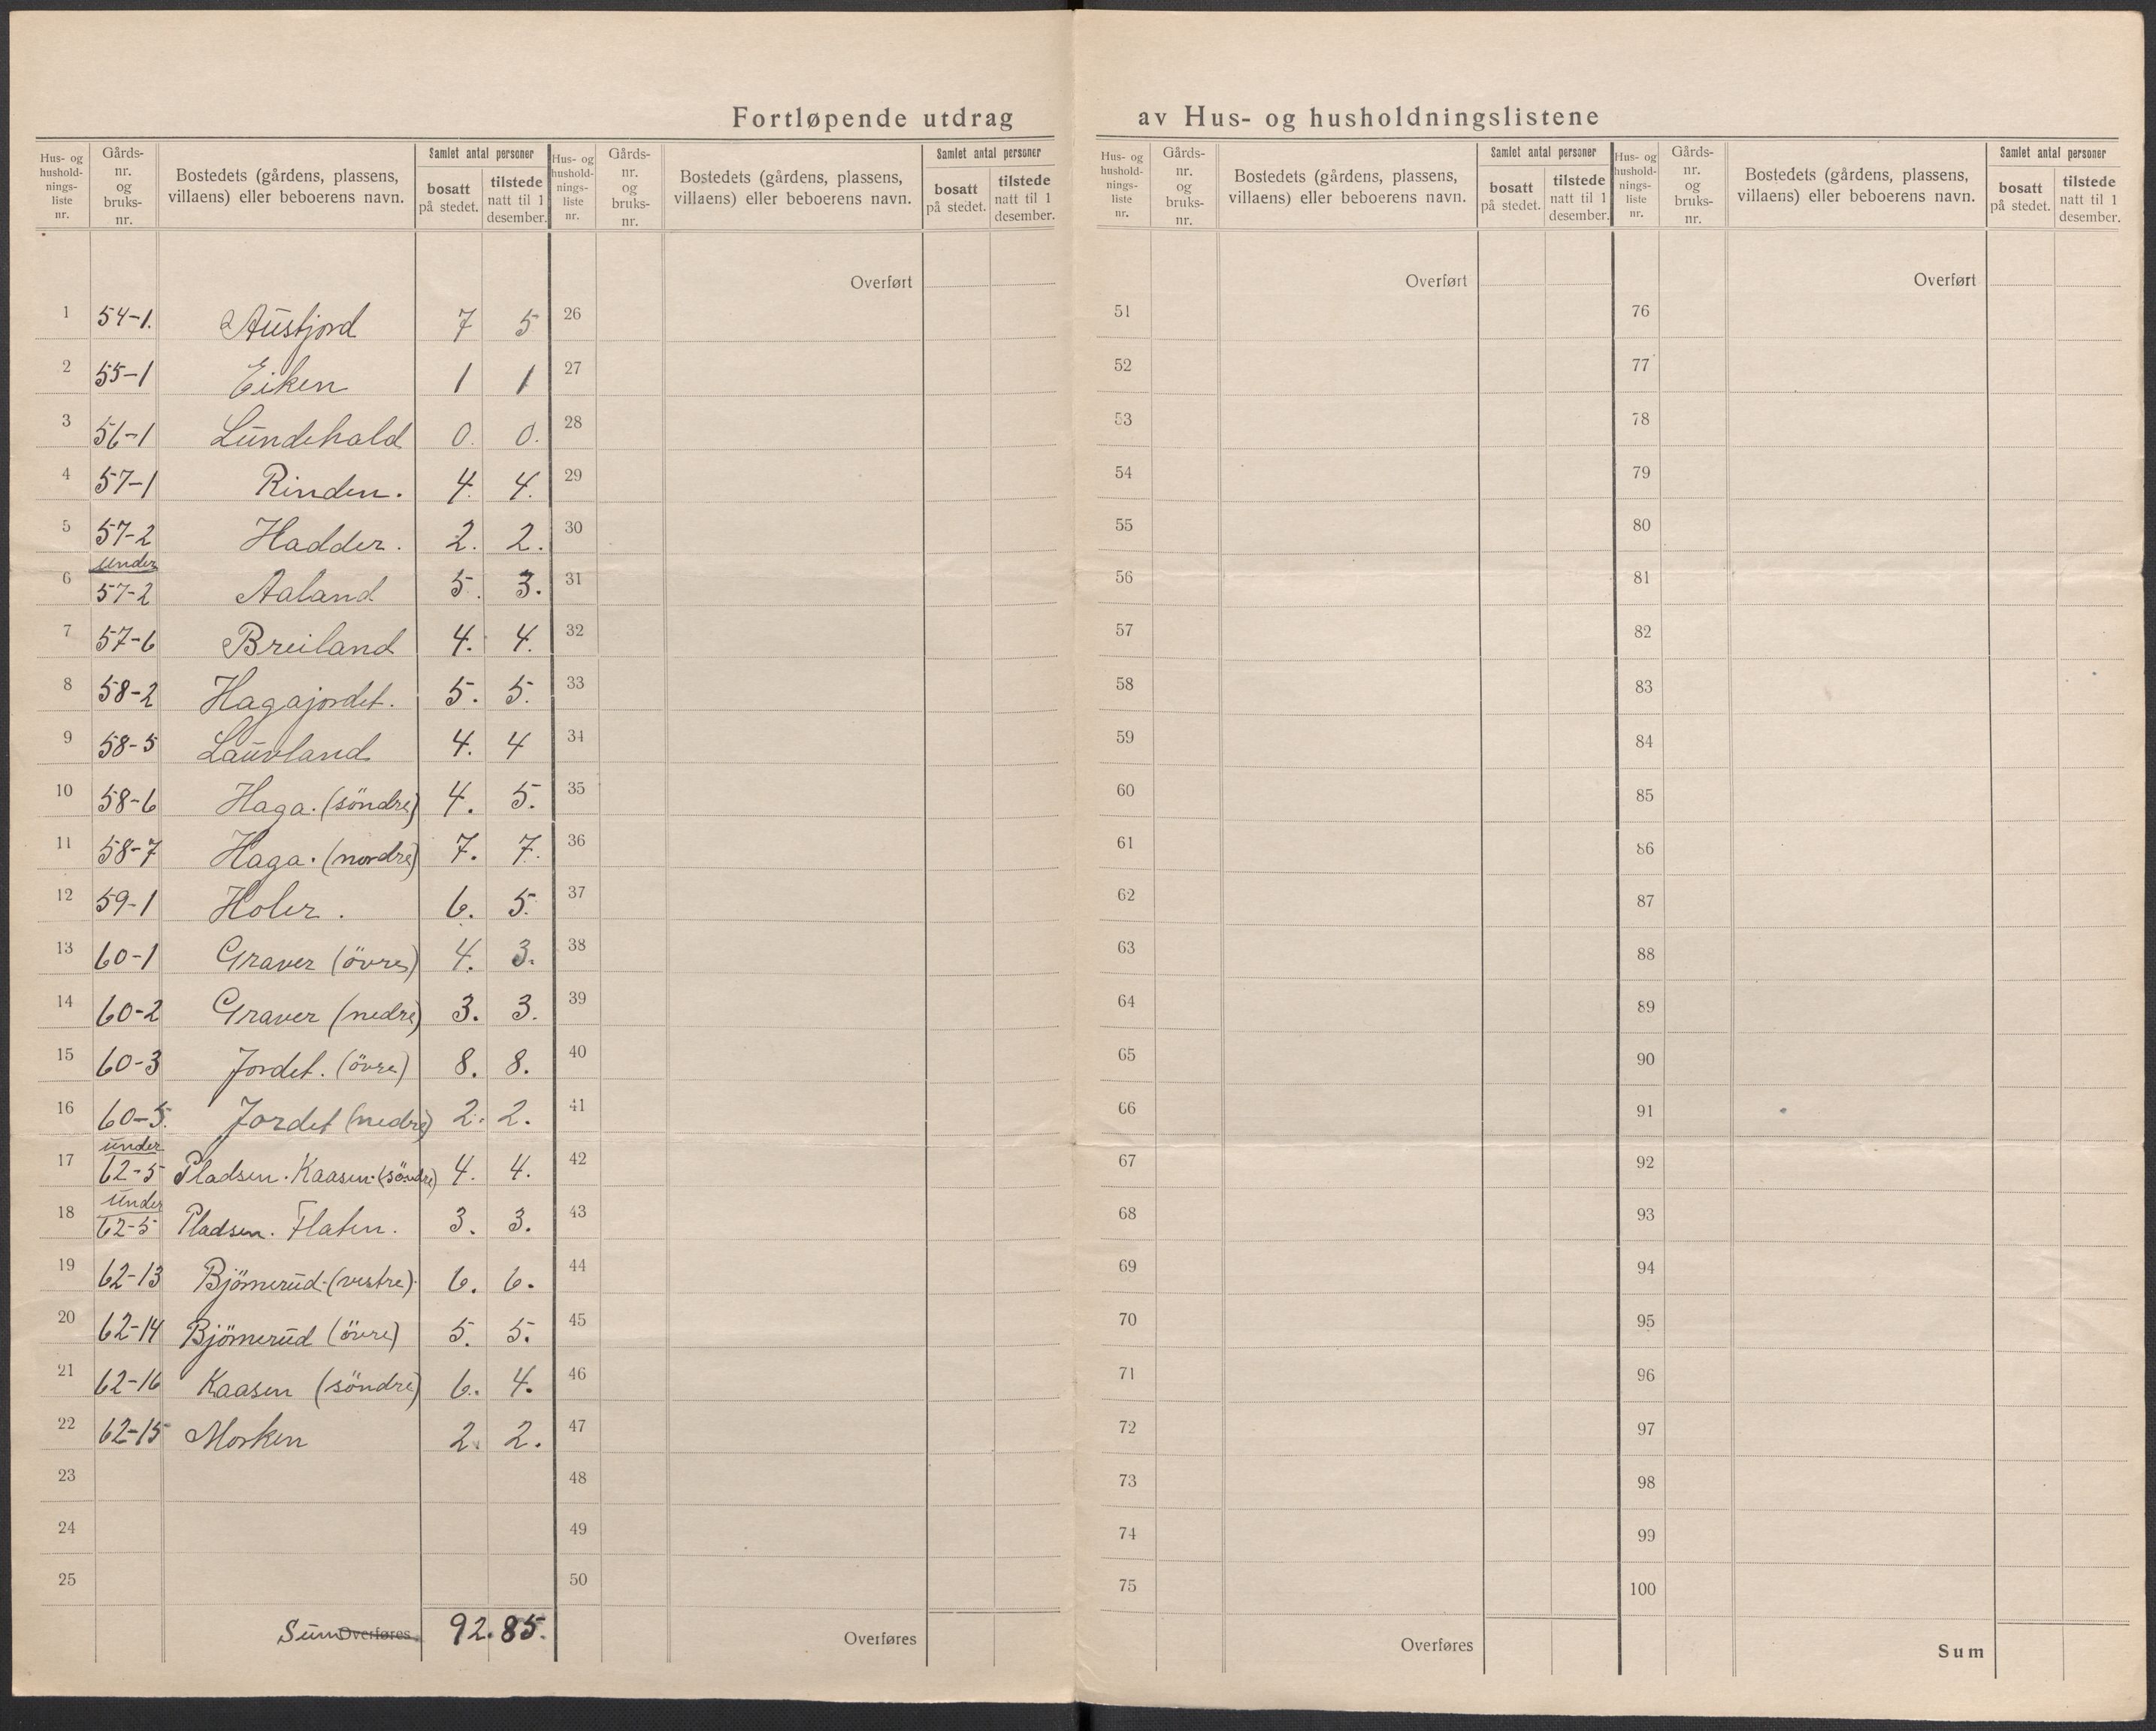 Fortløpende utdrag av Hus- og husholdningslistene
Hus- og hushold- nings- liste nr. | Gårds- nr. og bruks- nr. | Bostedets (gårdens, plassens, villaens) eller beboerens navn. | Samlet antal personer | bosatt på stedet. | tilstede natt til 1 desember.
Hus- og hushold- nings- liste nr. | Gårds- nr. og bruks- nr. | Bostedets (gårdens, plassens, villaens) eller beboerens navn. | Samlet antal personer | bosatt på stedet. | tilstede natt til 1 desember.
Hus- og hushold- nings- liste nr. | Gårds- nr. og bruks- nr. | Bostedets (gårdens, plassens, villaens) eller beboerens navn. | Samlet antal personer | bosatt på stedet. | tilstede natt til 1 desember.
Hus- og hushold- nings- liste nr. | Gårds- nr. og bruks- nr. | Bostedets (gårdens, plassens, villaens) eller beboerens navn. | Samlet antal personer | bosatt på stedet. | tilstede natt til 1 desember.
Overført Overført Overført
1 54-1. Austjord 7 5 26 51 76
2 55-1 Eiken 1 1 27 52 77
3 56-1 Lundehald 0. 0. 28 53 78
4 57-1 Rinden. 4. 4. 29 54 79
5 57-2 Hadder. 2. 2. 30 55 80
under
6 57-2 Aaland 5. 3. 31 56 81
7 57-6 Breiland 4. 4. 32 57 82
8 58-2 Hagajordet. 5. 5. 33 58 83
9 58-5 Lauvland 4. 4 34 59 84
10 58-6 Haga. (söndre) 4. 5. 35 60 85
11 58-7 Haga. (nordre) 7. 7. 36 61 86
12 59-1 Holer. 6. 5. 37 62 87
13 60-1 Graver (övre) 4. 3. 38 63 88
14 60-2 Graver (nedre) 3. 3. 39 64 89
15 60-3 Jordet. (övre) 8. 8. 40 65 90
16 60-5. Jordet (nedre) 2. 2. 41 66 91
under
17 62-5 Pladsen. Kaasen. (söndre) 4. 4. 42 67 92
under
18 62-5 Pladsen. Flaten. 3. 3. 43 68 93
19 62-13 Björnerud. (vestre). 6. 6. 44 69 94
20 62-14 Björnerud (övre) 5. 5. 45 70 95
21 62-16 Kaasen (söndre) 6. 4. 46 71 96
22 62-15 Morken 2. 2. 47 72 97
23 48 73 98
24 49 74 99
25 50 75 100
Sum Overføres 92. 85. Overføres Overføres Sum